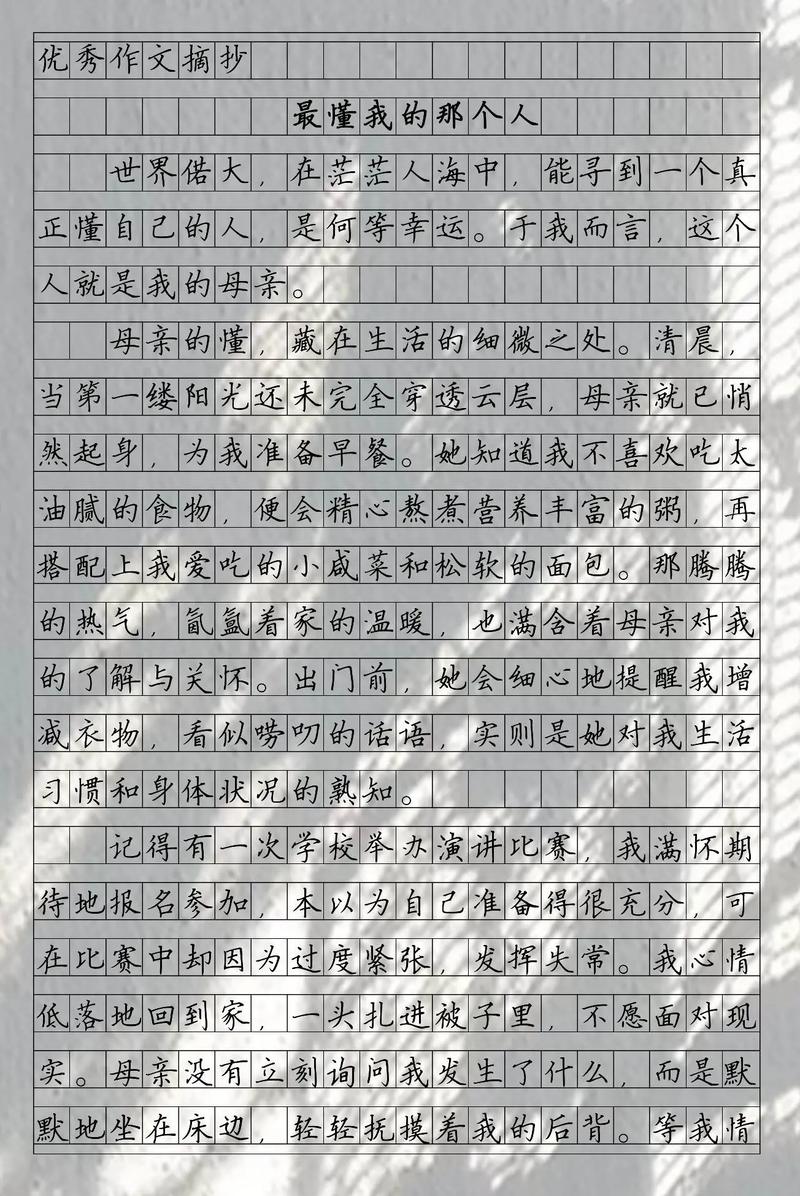 优秀作文摘抄
最懂我的那个人
世界偌大，在茫茫人海中，能寻到一个真
正懂自己的人，是何等幸运。于我而言，这个
人就是我的母亲。
母亲的懂，藏在生活的细微之处。清晨，
当第一缕阳光还未完全穿透云层，母亲就已悄
然起身，为我准备早餐。她知道我不喜欢吃太
油腻的食物，便会精心熬煮营养丰富的粥，再
搭配上我爱吃的小咸菜和松软的面包。那腾腾
的热气，氤氲着家的温暖，也满含着母亲对我
的了解与关怀。出门前，她会细心地提醒我增
减衣物，看似唠叨的话语，实则是她对我生活
习惯和身体状况的熟知。
记得有一次学校举办演讲比赛，我满怀期
待地报名参加，本以为自己准备得很充分，可
在比赛中却因为过度紧张，发挥失常。我心情
低落地回到家，一头扎进被子里，不愿面对现
实。母亲没有立刻询问我发生了什么，而是默
默地坐在床边，轻轻抚摸着我的后背。等我情